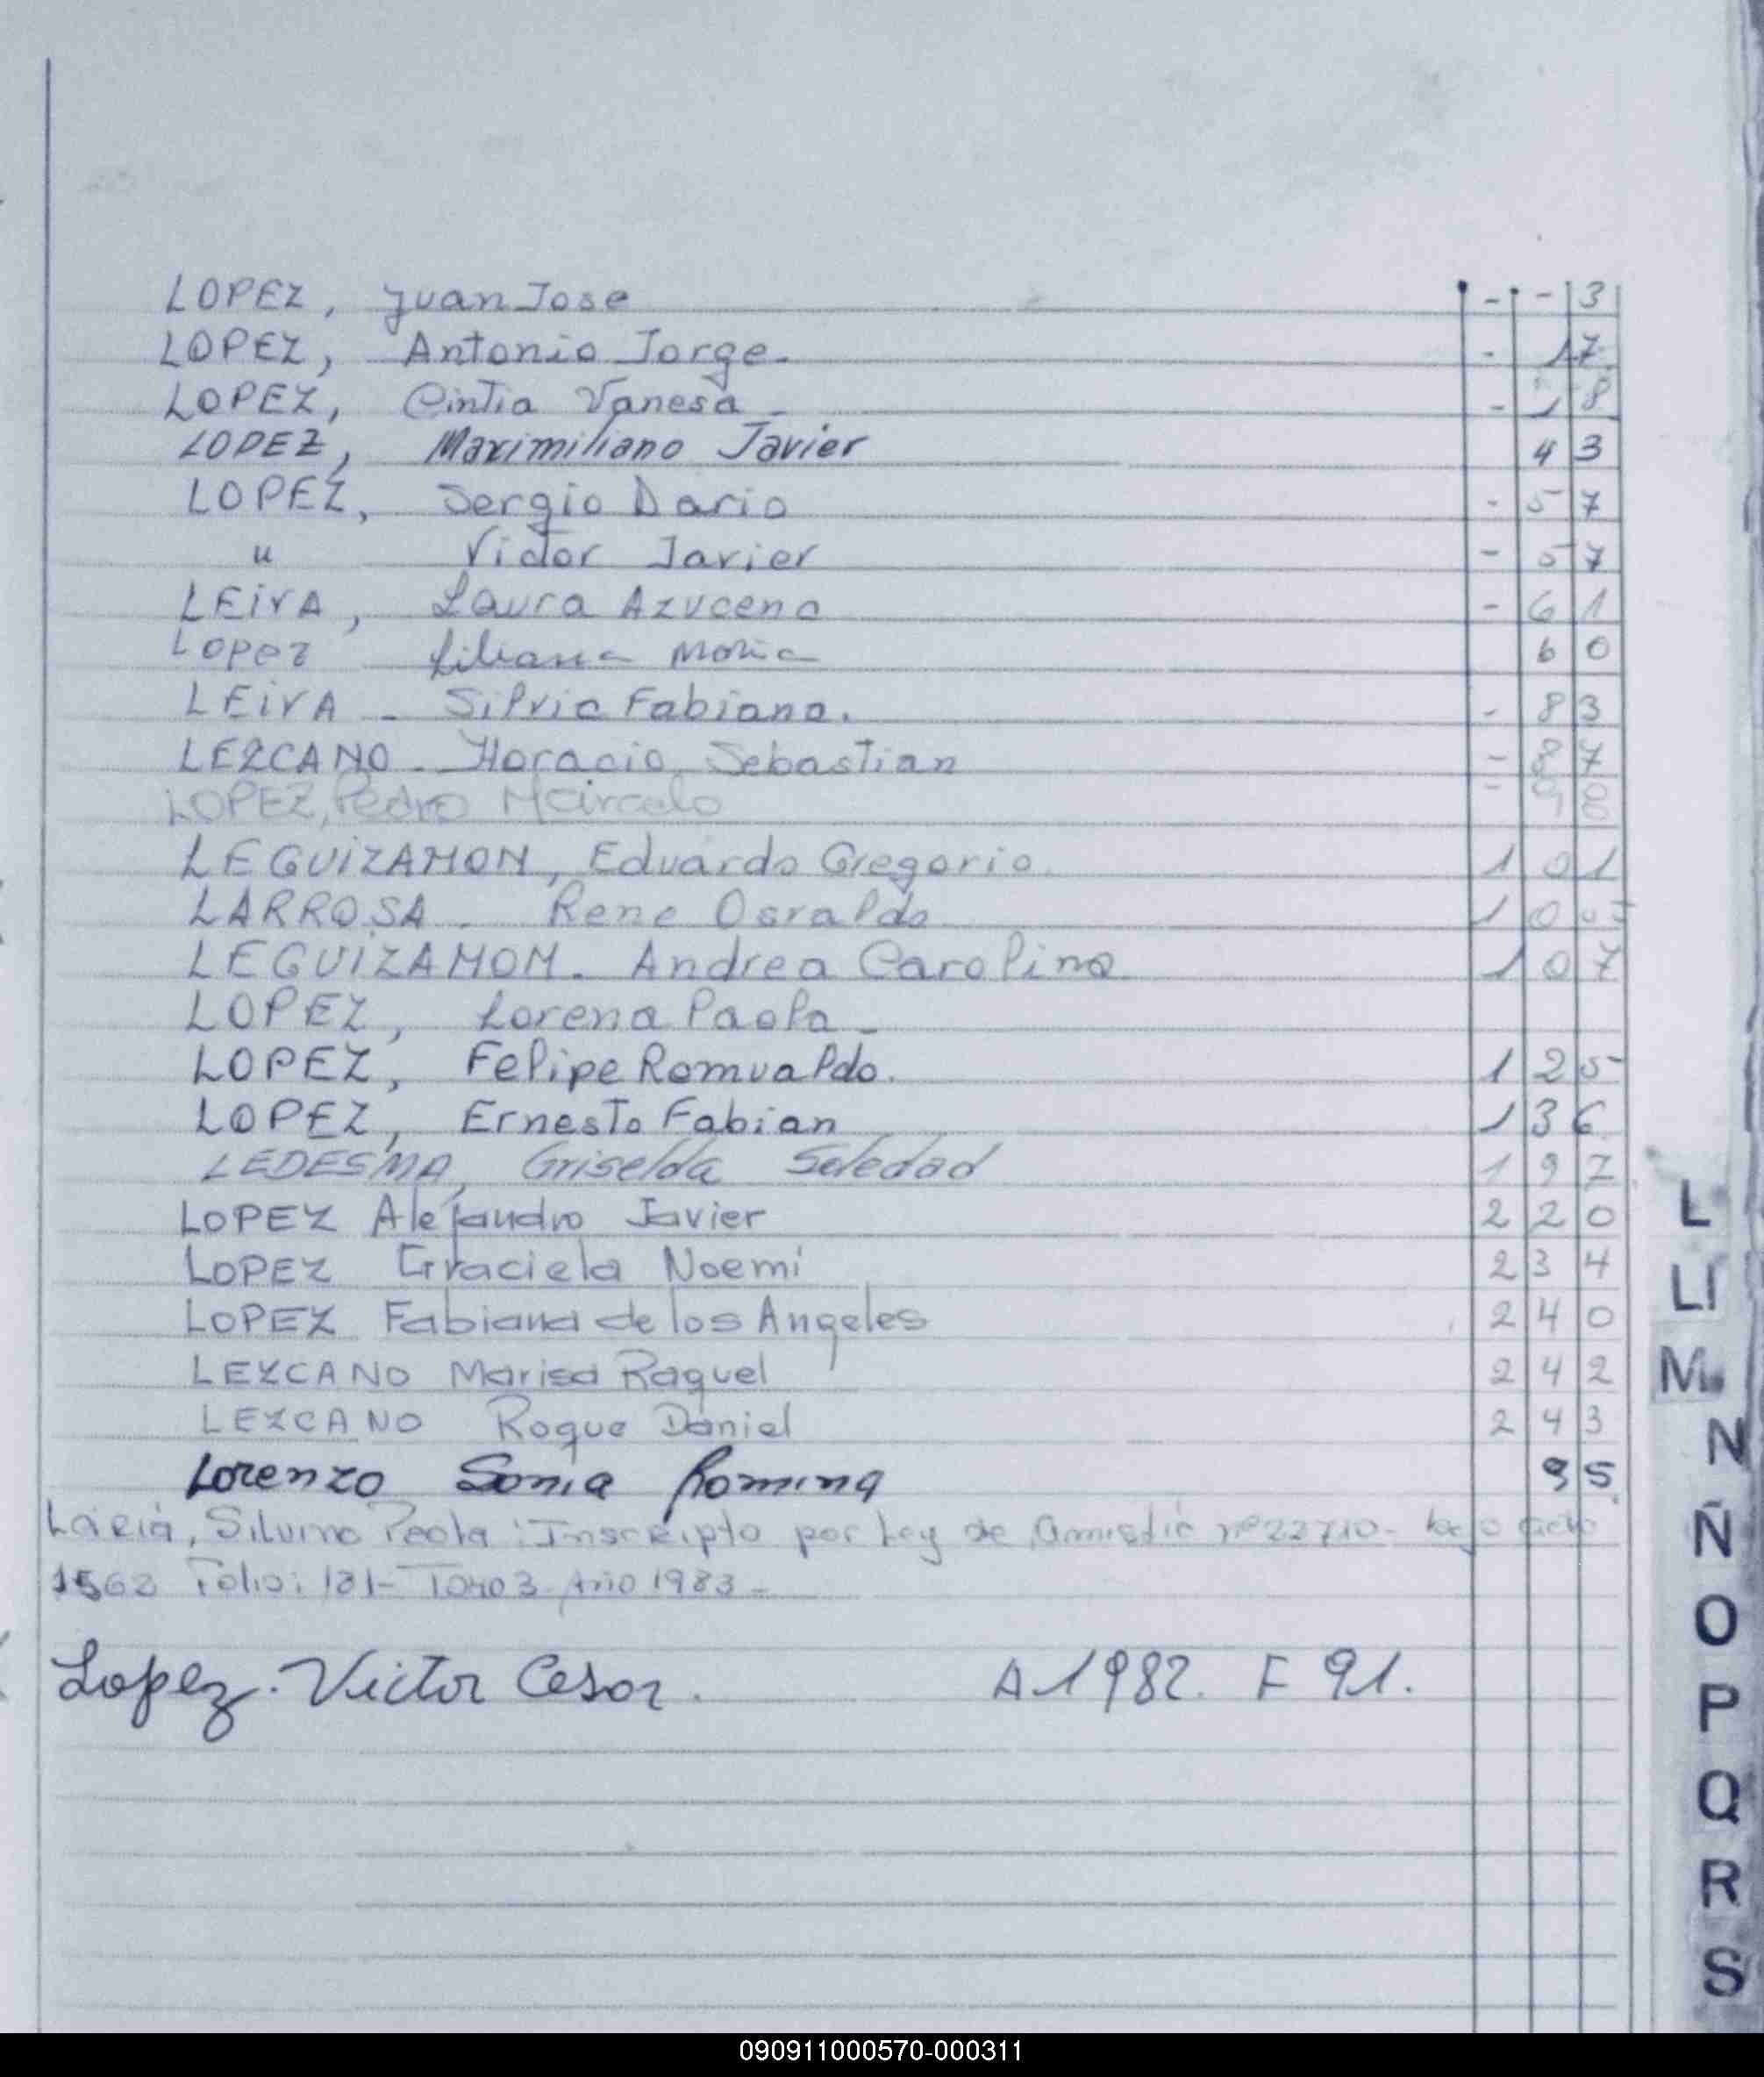 LOPEZ, Juan Jose - - 3
LOPEZ, Antonio Jorge. - 17
LOPEZ, Cintia Vanesa - - 18
LOPEZ, Maximiliano Javier 43
LOPEZ, Sergio Dario - 57
" Victor Javier - 57
LEIVA, Laura Azucena - 61
Lopez Liliana Maria 60
LEIVA - Silvia Fabiana. - 83
LEZCANO - Horacio Sebastian - 87
LOPEZ, Pedro Marcelo - 98
LEGUIZAMON, Eduardo Gregorio. 101
LARROSA - Rene Osvaldo 10
LEGUIZAMON. Andrea Carolina 107
LOPEZ, Lorena Paola -
LOPEZ, Felipe Romualdo. 125
LOPEZ, Ernesto Fabian 136
LEDESMA, Griselda Soledad 197
LOPEZ Alejandro Javier 220
LOPEZ Graciela Noemí 234
LOPEZ Fabiana de los Angeles 240
LEZCANO Marisa Raquel 242
LEZCANO Roque Daniel 243
Lorenzo Sonia Romina 95
Silvino Paola: Inscripto por Ley de Amnistía nº 22710 - bajo acta
1563 Folio: 131 - Tomo 3 - Año 1983 -
Lopez. Victor Cesar. A 1982. F 91.
L
Ll
M
N
Ñ
O
P
Q
R
S
090911000570-000311